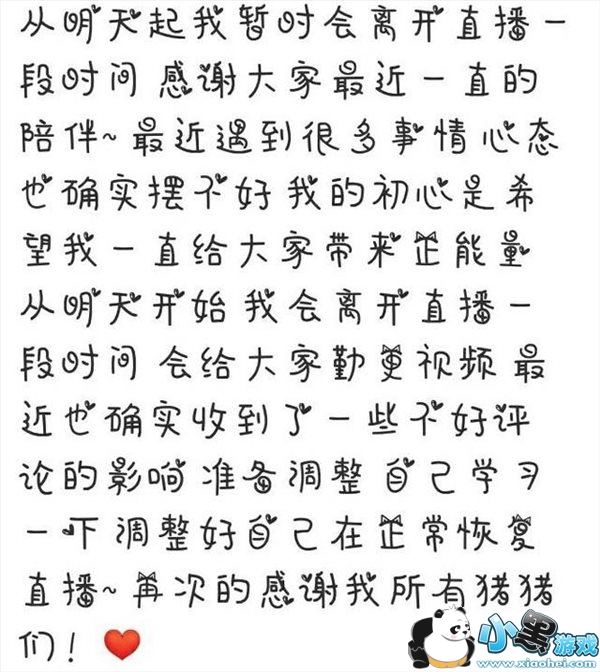 从明天起我暂时会离开直播一
段时间 感谢大家最近一直的
陪伴~最近遇到很多事情心态
也确实摆不好 我的初心是希
望我一直给大家带来正能量
从明天开始 我会离开直播一
段时间 会给大家勤更视频 最
近也确实收到了一些不好评
论的影响 准备调整 自己学习
一下 调整好自己在正常恢复
直播~再次的感谢我所有猪猪
们！❤️
小黑游戏
www.xiaohei.com